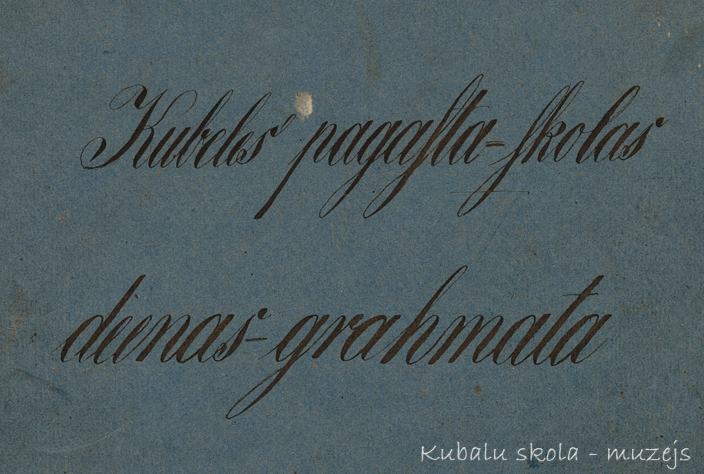 Kubeles pagaſta-ſkolas
deenas-grahmata
Kubalu skola - muzejs